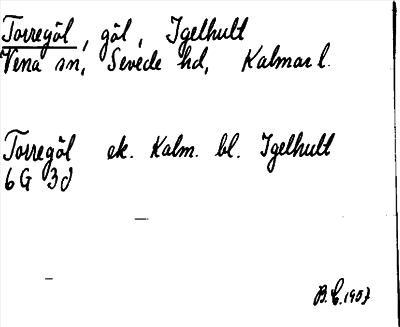 Torregöl, göl, Igelhult
Vena sn, Sevede hd, Kalmar l.
Torregöl ek. Kalm. bl. Igelhult
6G 3d
B.E. 1957